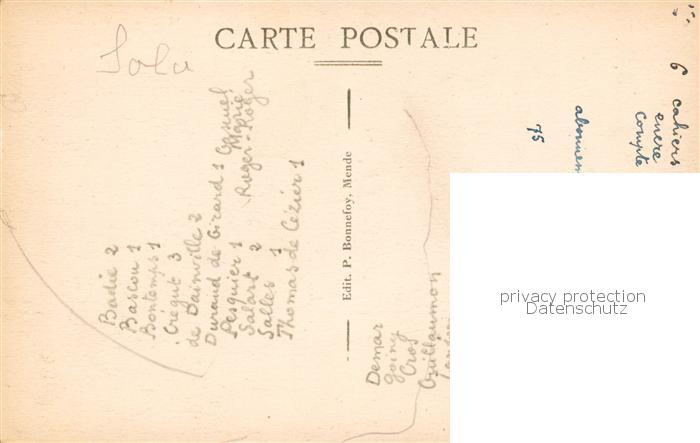 CARTE POSTALE
Badie 2
Bascou 1
Bontemps 1
Crégut 3
de Dainville 2
Durand de Girard 1
Pesquier 1
Salart 2
Salles 1
Thomas de Cézier 1
Marie
Roger-Roger
Edit. P. Bonnefoy, Mende
Demar
Cros
Guillaumon
6 cahiers
encre
Compte
75
privacy protection
Datenschutz